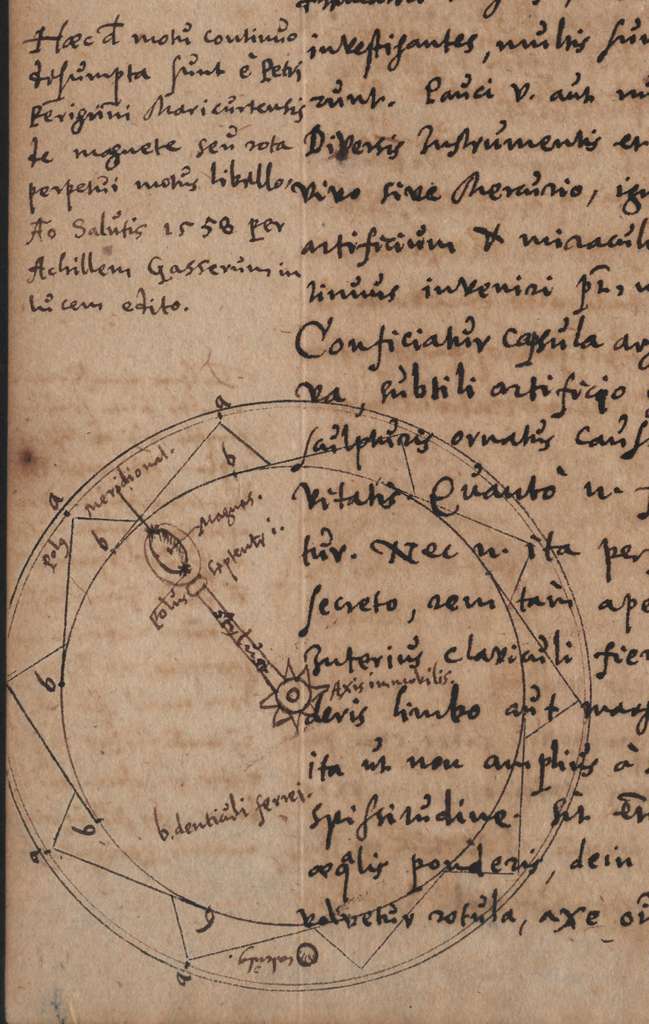 Hæc d motu continuo
desumpta sunt è Petri
Peregrini Maricurtensis
de magnete seu rota
perpetui motus libello,
Ao Salutis 1558 per
Achillem Gasserum in
lucem edito.
investigantes, multis
runt. Pauci v. aut
Diversis Instrumentis et
vivo sive Mercurio,
artificium &
tinuus inveniri
Conficiatur capsula
va, subtili artificio
sculpturis ornatus
vitatis. Quanto n.
tur. Nec n. ita
secreto, rem tam
Interius claviculi
deris limbo aut
ita ut non amplius à
spissitudine. sit
æqlis ponderis, dein
volvetur rotula, axe
a
b
a
meridional.
b
Magnes.
Polus
Septentri.
Polus
stylus
Axis immobilis.
b
b. denticuli ferrei.
b
a
b
a
calculus.